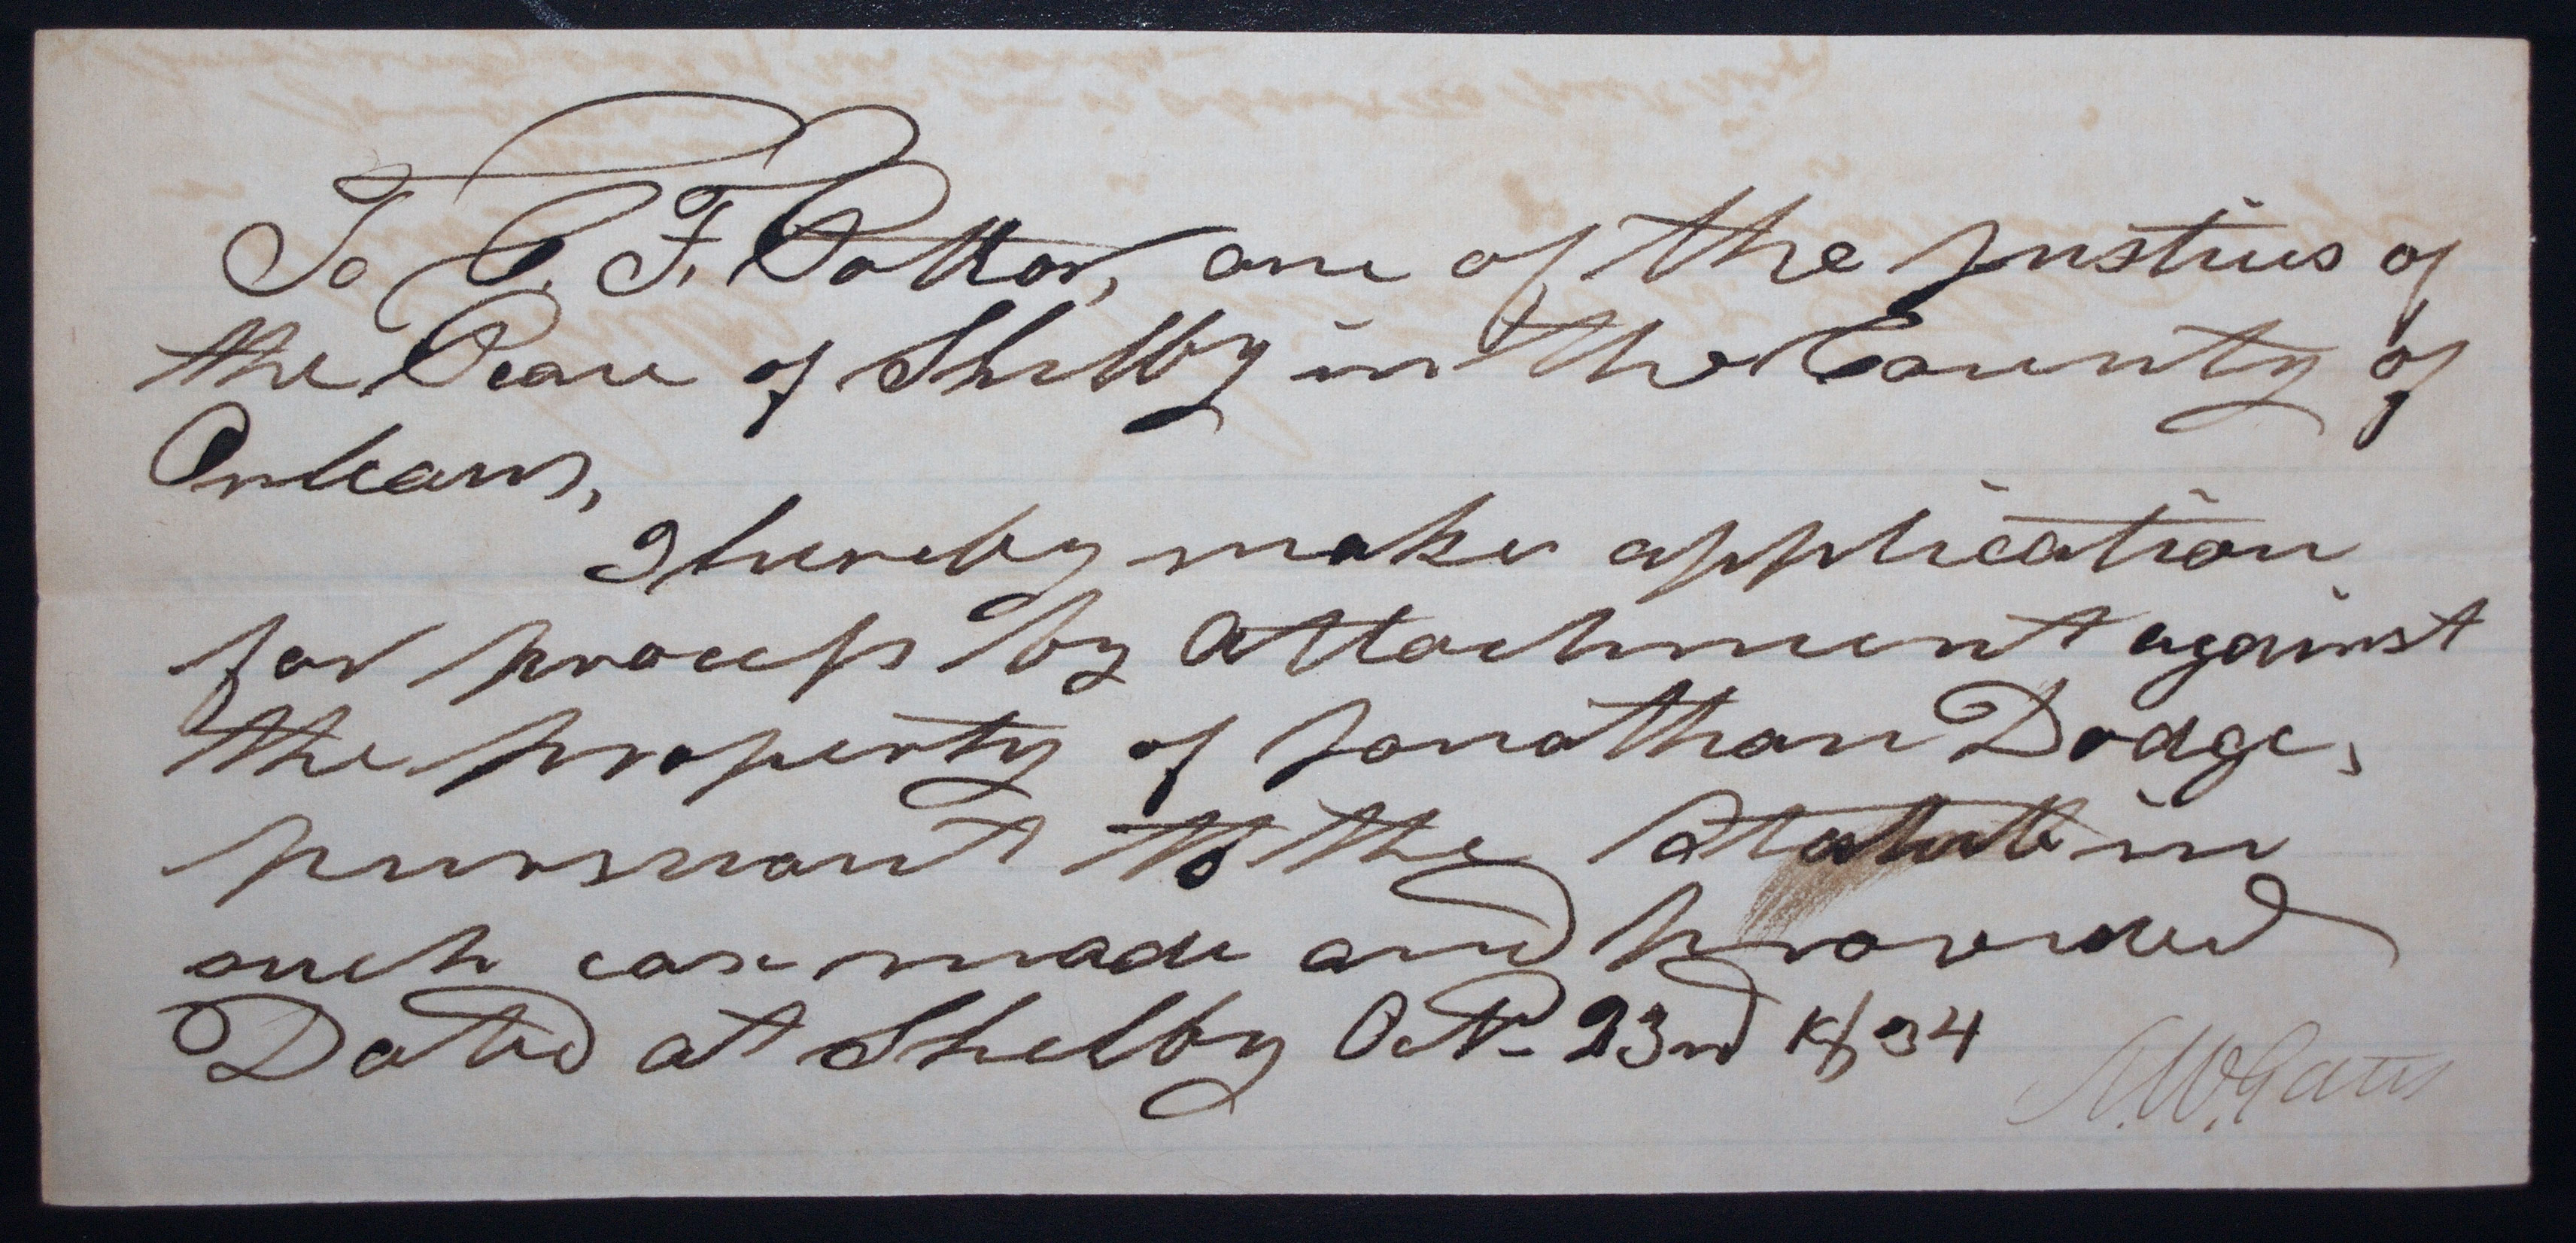 To C. F. Potter, one of the Justices of
the Peace of Shelby in the County of
Orleans,
I hereby make application
for process by Attachment against
the property of Jonathan Dodge,
pursuant to the Statute in
such case made and provided
Dated at Shelby Oct. 23rd
N.W. Gates